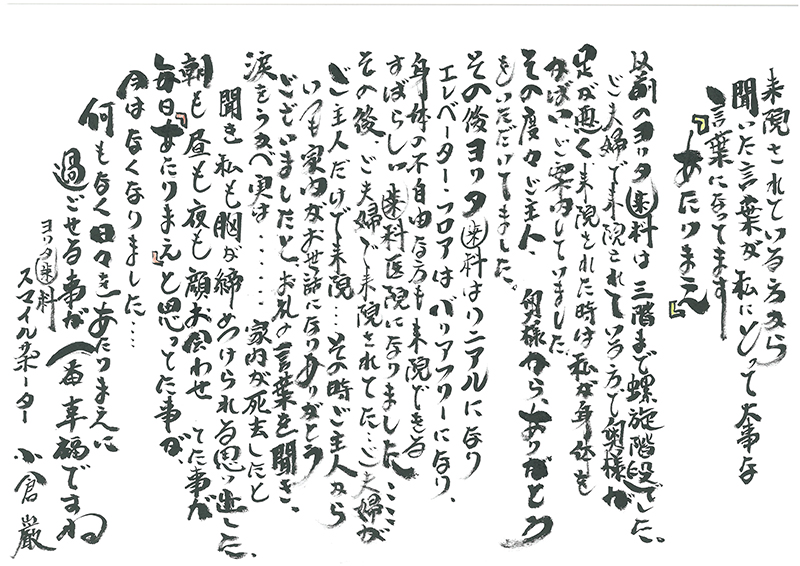 来院されている方から
聞いた言葉が私にとって大事な
言葉になってます
『あたりまえ』
以前のヨリタ歯科は三階まで螺旋階段でした。
ご夫婦で来院されている方で奥様が
足が悪く、来院された時は私が身体を
かばいご案内していました。
その度々ご主人、奥様から、ありがとう
をいただいてました。
その後ヨリタ歯科はリニアルになり
エレベーター・フロアはバリアフリーになり、
身体の不自由なる方も来院できる
すばらしい歯科医院になりました…
その後、ご夫婦で来院されてた…ご夫婦が
ご主人だけで来院…その時ご主人から
いつも家内がお世話になりありがとう
ございましたと、お礼の言葉を聞き、
涙をうかべ実は……家内が死去したと
聞き私も胸が締めつけられる思い出した、
朝も昼も夜も顔お合わせてた事が
毎日『あたりまえ』と思ってた事が、
今はなくなりました…
何もなく日々をあたりまえに
過ごせる事が一番幸福ですね
ヨリタ歯科
スマイルサポーター 小倉 巌